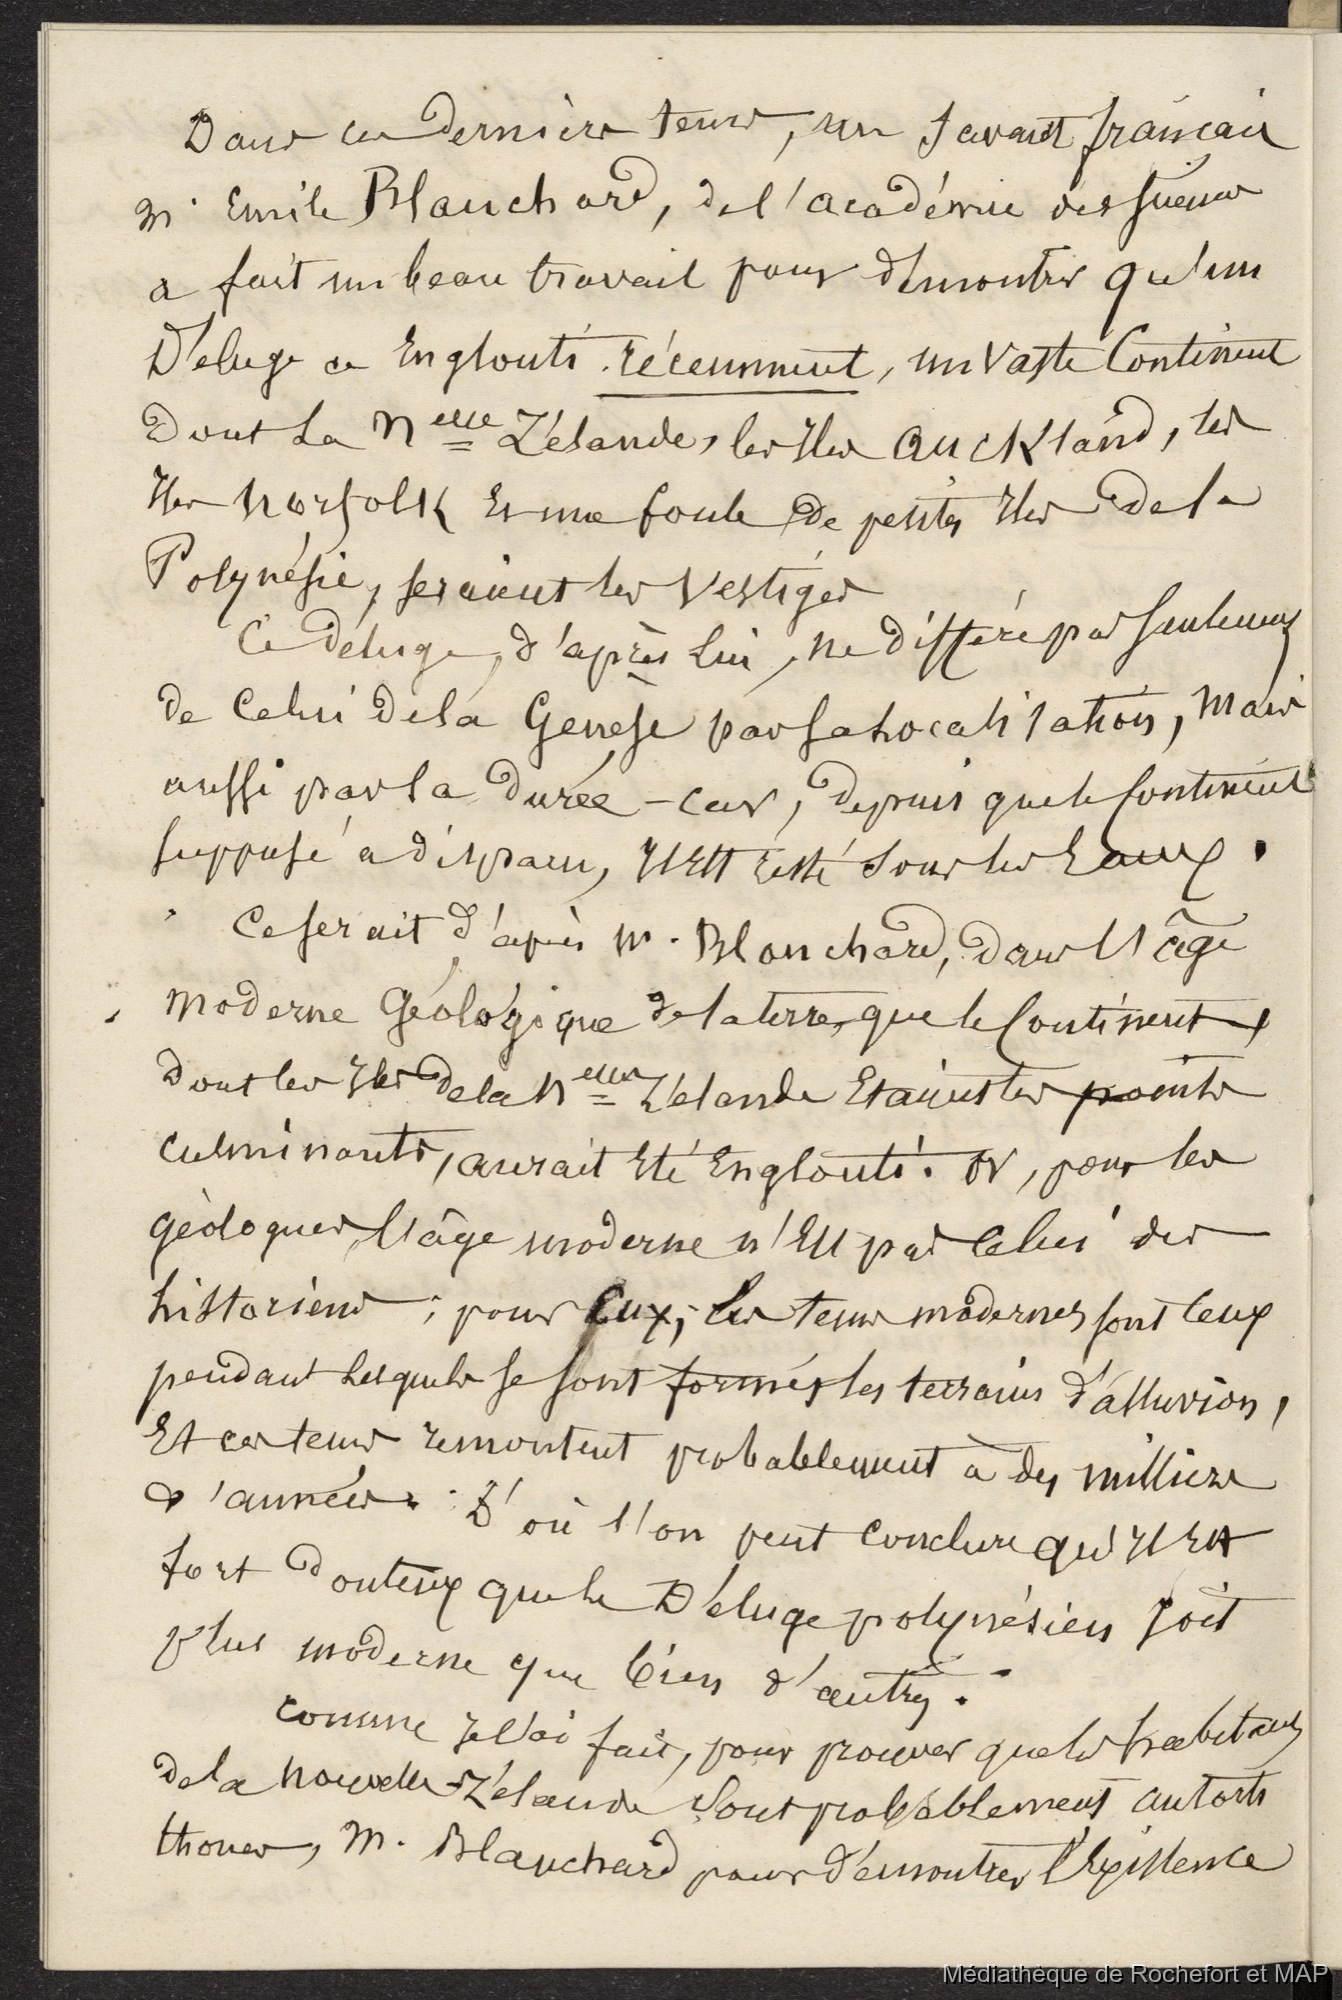 Dans ces derniers tems, un savant français
Mr Emile Blanchard, de l'académie des sciences
a fait un beau travail pour démontrer qu'un
Déluge a Englouti récemment, un vaste Continent
dont la Nelle Zélande, les Iles Auckland, les
Iles Norfolk Et une foule de petites Iles de la
Polynésie, seraient les Vestiges
Ce déluge, d'après lui, ne diffère pas seulement
de Celui de la Genèse par sa Localisation, Mais
aussi par la durée – car, depuis que le Continent
supposé a disparu, Il Est resté sous les Eaux.
Ce serait d'après M. Blanchard, dans l'âge
moderne Géologique de la terre, que le Continent,
dont les Iles de la Nelle Zélande Etaient les points
culminants, aurait Eté Englouti. Or, pour les
géologues, l'âge moderne n'Est pas Celui des
historiens; pour Eux, les tems modernes sont Ceux
pendant lesquels se sont formés les terrains d'alluvion,
Et ces tems remontent probablement à des milliers
d'années. D'où l'on peut Conclure qu'Il Est
fort douteux que le Déluge polynésien soit
plus moderne que bien d'autres.
Comme Je l'ai fait, pour prouver que les habitans
de la Nouvelle-Zélande Sont probablement autoch
thones, M. Blanchard pour démontrer l'Existence
Médiathèque de Rochefort et MAP